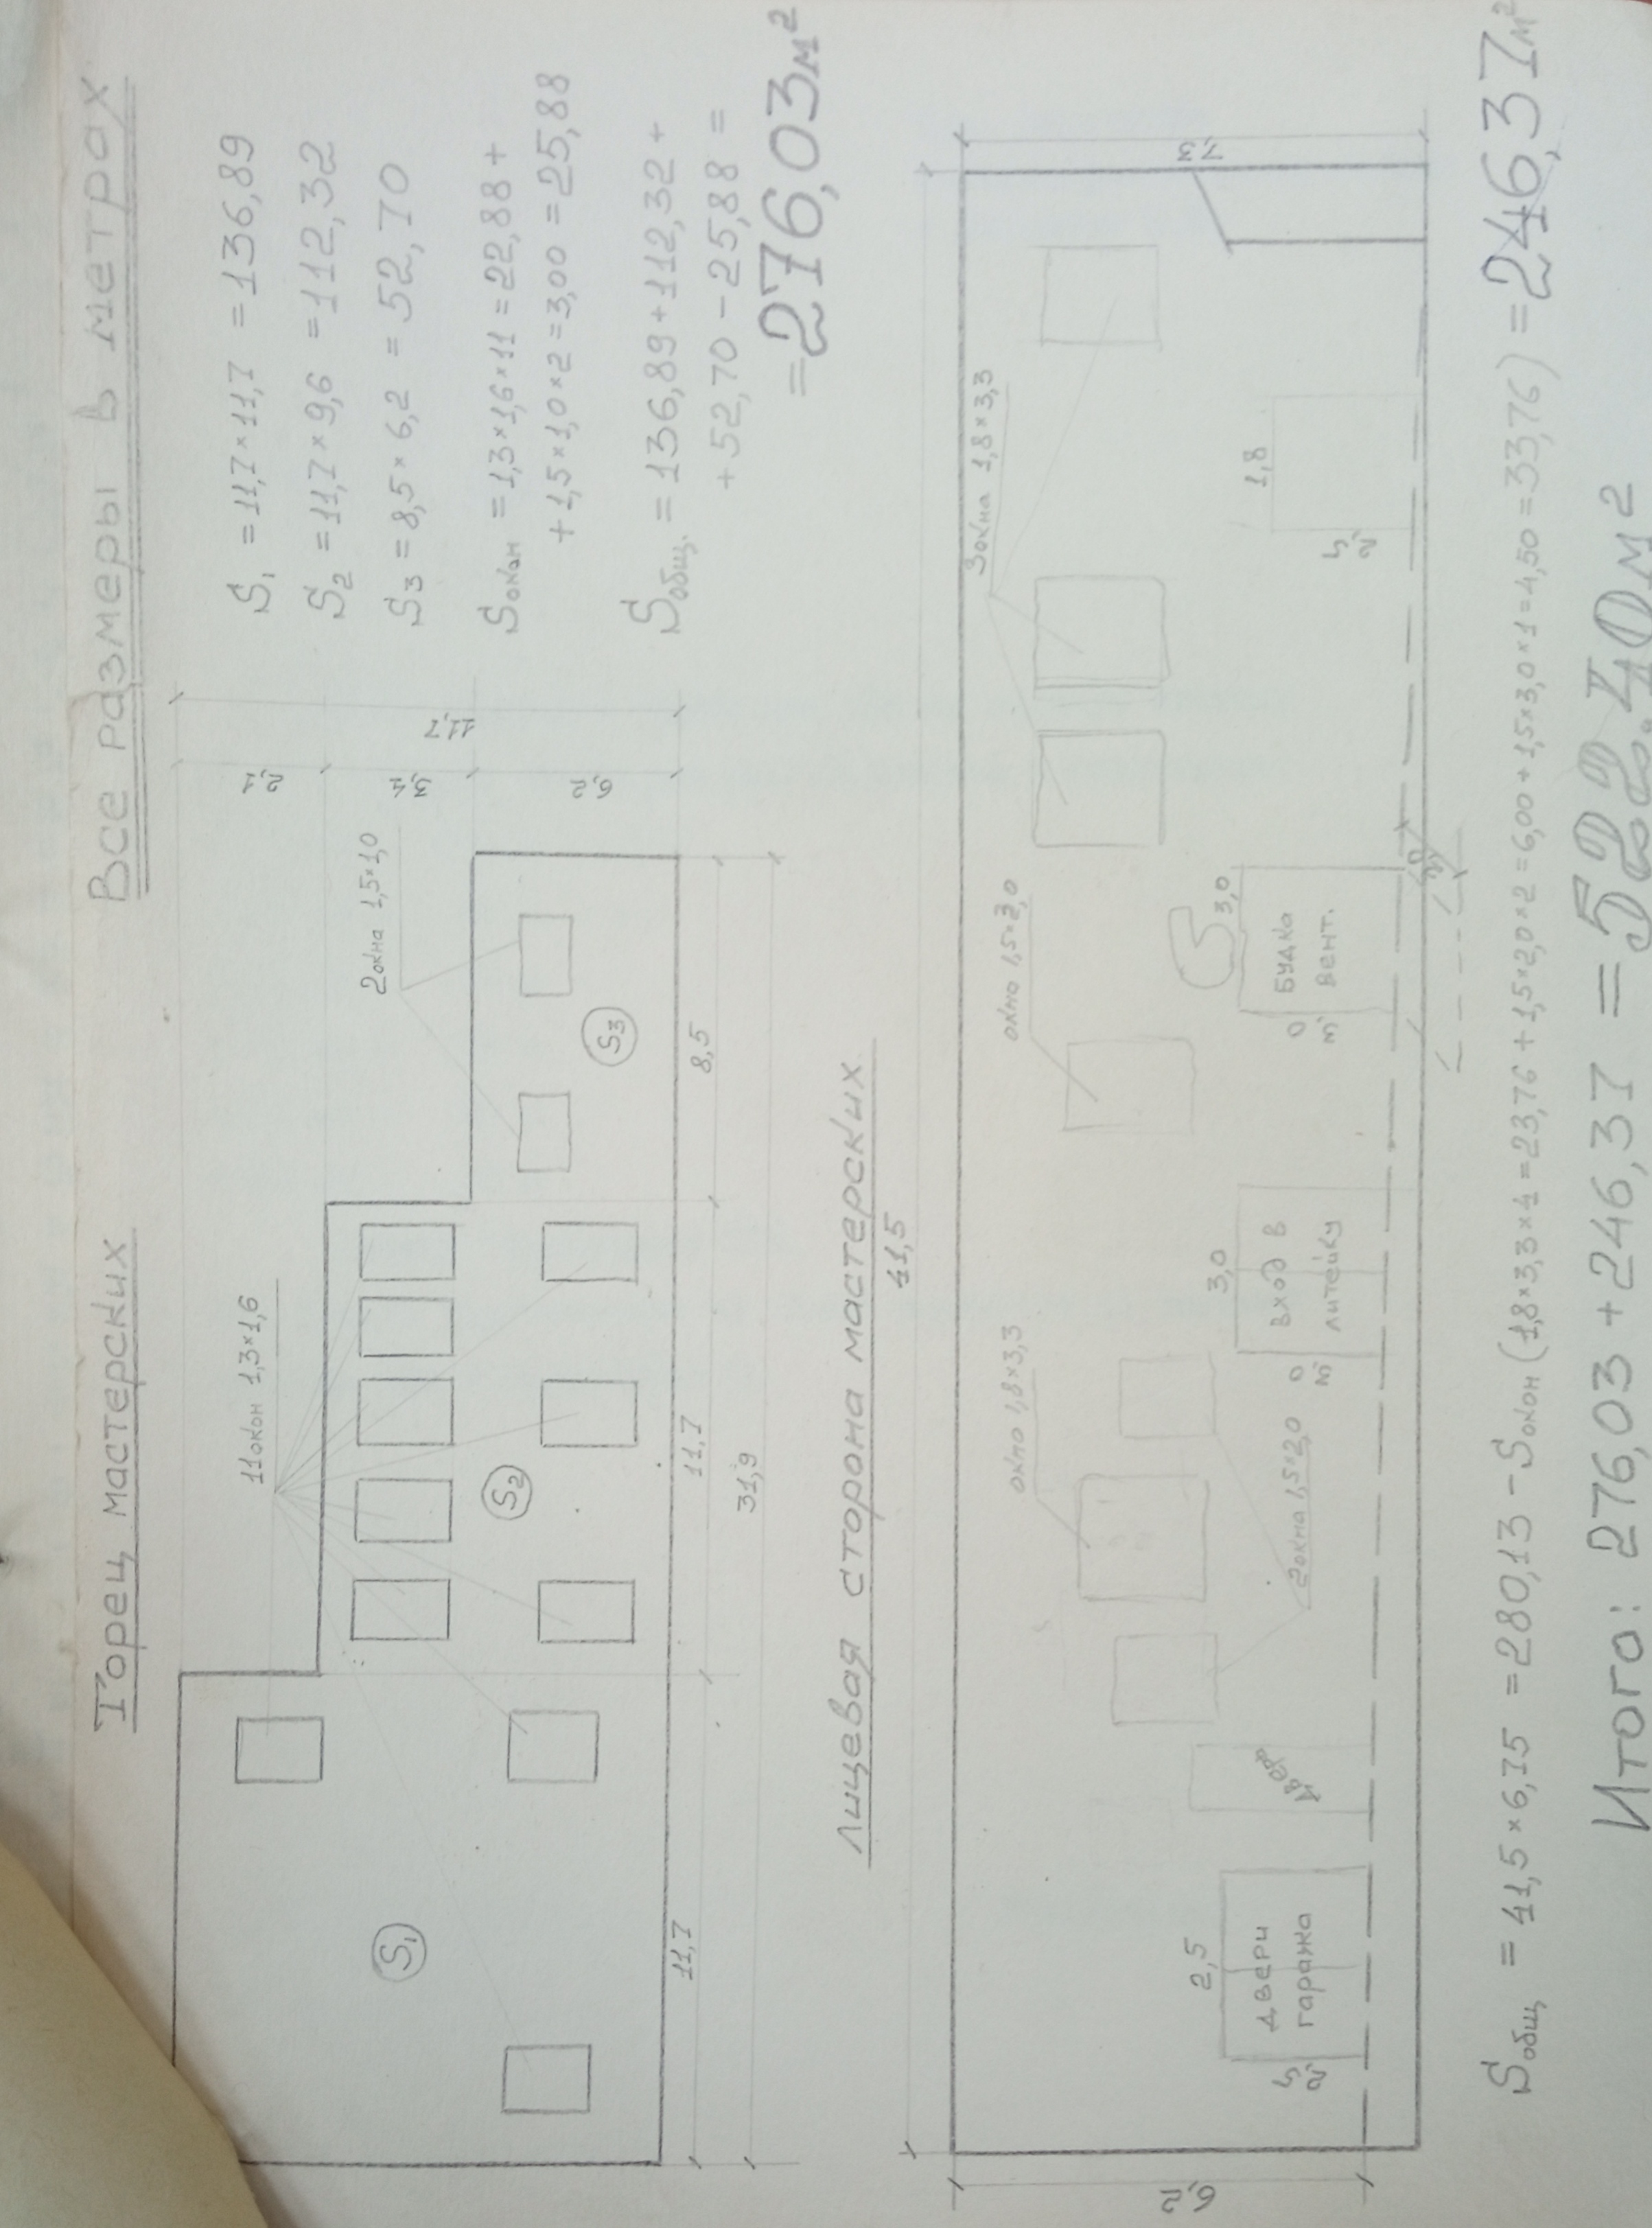 Торец мастерских
Все размеры в метрах
11окон 1,3×1,6
2окна 1,5×1,0
S1
S2
S3
2,1
3,4
6,2
11,7
11,7
11,7
8,5
31,9
S1 = 11,7×11,7 = 136,89
S2 = 11,7×9,6 = 112,32
S3 = 8,5×6,2 = 52,70
Sокон = 1,3×1,6×11 = 22,88 +
+ 1,5×1,0×2 = 3,00 = 25,88
Sобщ. = 136,89 + 112,32 +
+ 52,70 − 25,88 =
= 276,03м²
Лицевая сторона мастерских
41,5
окно 1,8×3,3
окно 1,5×3,0
3окна 1,8×3,3
2окна 1,5×2,0
6,2
7,3
2,5
2,5
двери
гаража
дверь
3,0
3,0
вход в
литейку
3,0
3,0
будка
вент.
1,8
2,5
Sобщ = 41,5×6,75 = 280,13 − Sокон (1,8×3,3×4 = 23,76 + 1,5×2,0×2 = 6,00 + 1,5×3,0×1 = 4,50 = 33,76) = 246,37м²
Итого: 276,03 + 246,37 = 522,40м²